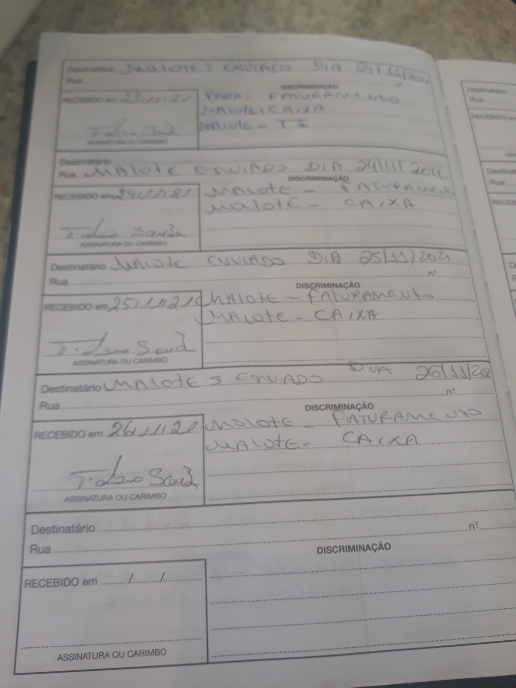 Destinatário MALOTES ENVIADO DIA 23/11/2021
Rua nº
DISCRIMINAÇÃO
RECEBIDO em 23/11/21 PARA - FATURAMENTO
MALOTE - CAIXA
MALOTE - TI
ASSINATURA OU CARIMBO
Destinatário
Rua MALOTE ENVIADOS DIA 24/11/2021
DISCRIMINAÇÃO
RECEBIDO em 24/11/21 MALOTE - FATURAMENTO
MALOTE - CAIXA
ASSINATURA OU CARIMBO
Destinatário MALOTE ENVIADO DIA 25/11/2021
Rua nº
DISCRIMINAÇÃO
RECEBIDO em 25/11/21 MALOTE - FATURAMENTO
MALOTE - CAIXA
ASSINATURA OU CARIMBO
Destinatário MALOTES ENVIADO DIA 26/11/202
Rua nº
DISCRIMINAÇÃO
RECEBIDO em 26/11/21 MALOTE - FATURAMENTO
MALOTE - CAIXA
ASSINATURA OU CARIMBO
Destinatário nº
Rua
DISCRIMINAÇÃO
RECEBIDO em / /
ASSINATURA OU CARIMBO